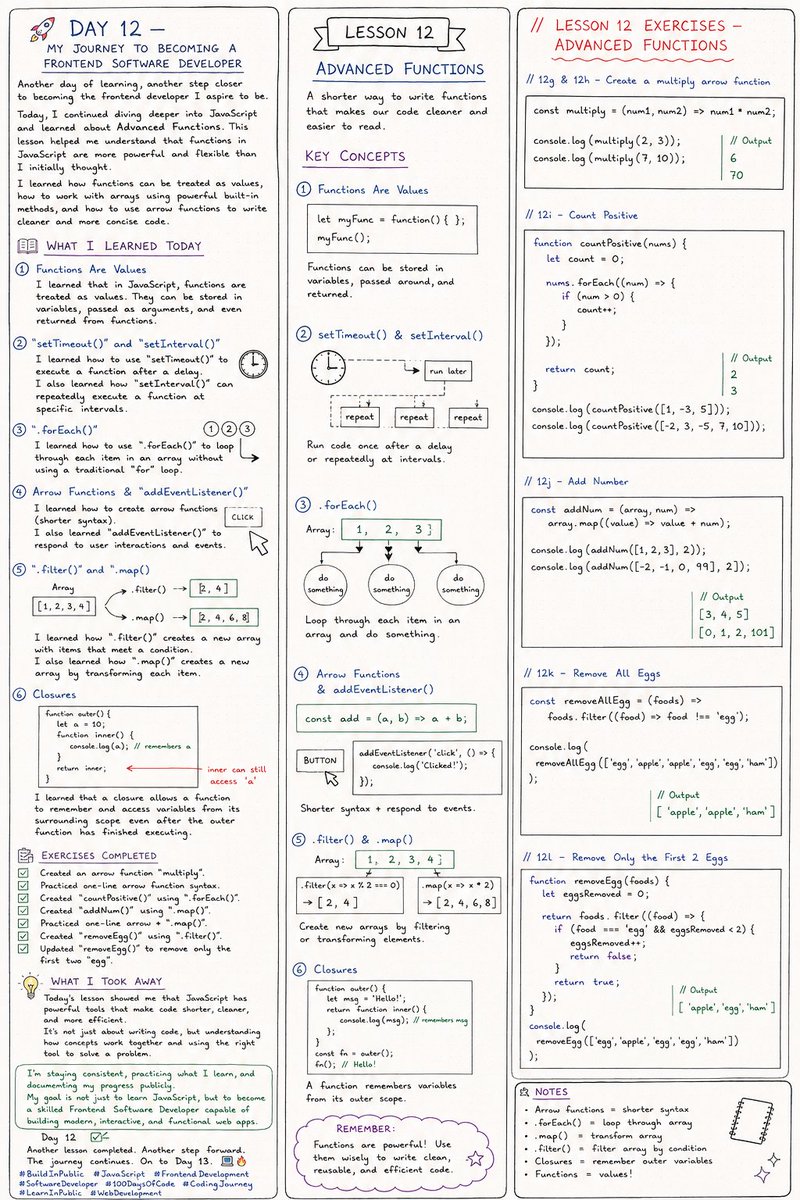 DAY 12 —
MY JOURNEY TO BECOMING A
FRONTEND SOFTWARE DEVELOPER
Another day of learning, another step closer
to becoming the frontend developer I aspire to be.
Today, I continued diving deeper into JavaScript
and learned about Advanced Functions. This
lesson helped me understand that functions in
JavaScript are more powerful and flexible than
I initially thought.
I learned how functions can be treated as values,
how to work with arrays using powerful built-in
methods, and how to use arrow functions to write
cleaner and more concise code.
WHAT I LEARNED TODAY
1 Functions Are Values
I learned that in JavaScript, functions are
treated as values. They can be stored in
variables, passed as arguments, and even
returned from functions.
2 "setTimeout()" and "setInterval()"
I learned how to use "setTimeout()" to
execute a function after a delay.
I also learned how "setInterval()" can
repeatedly execute a function at
specific intervals.
3 ".forEach()"
1 2 3
I learned how to use ".forEach()" to loop
through each item in an array without
using a traditional "for" loop.
4 Arrow Functions & "addEventListener()"
I learned how to create arrow functions
(shorter syntax).
I also learned "addEventListener()" to
respond to user interactions and events.
CLICK
5 ".filter()" and ".map()
Array
[1, 2, 3, 4]
.filter() → [2, 4]
.map() → [2, 4, 6, 8]
I learned how ".filter()" creates a new array
with items that meet a condition.
I also learned how ".map()" creates a new
array by transforming each item.
6 Closures
function outer() {
let a = 10;
function inner() {
console.log(a); // remembers a
}
return inner;
}
inner can still
access 'a'
I learned that a closure allows a function
to remember and access variables from its
surrounding scope even after the outer
function has finished executing.
EXERCISES COMPLETED
Created an arrow function "multiply".
Practiced one-line arrow function syntax.
Created "countPositive()" using ".forEach()".
Created "addNum()" using ".map()".
Practiced one-line arrow + ".map()".
Created "removeEgg()" using ".filter()".
Updated "removeEgg()" to remove only the
first two "egg".
WHAT I TOOK AWAY
Today's lesson showed me that JavaScript has
powerful tools that make code shorter, cleaner,
and more efficient.
It's not just about writing code, but understanding
how concepts work together and using the right
tool to solve a problem.
I'm staying consistent, practicing what I learn, and
documenting my progress publicly.
My goal is not just to learn JavaScript, but to become
a skilled Frontend Software Developer capable of
building modern, interactive, and functional web apps.
Day 12
Another lesson completed. Another step forward.
The journey continues. On to Day 13.
#BuildInPublic #JavaScript #FrontendDevelopment
#SoftwareDeveloper #100DaysOfCode #CodingJourney
#LearnInPublic #WebDevelopment
LESSON 12
ADVANCED FUNCTIONS
A shorter way to write functions
that makes our code cleaner and
easier to read.
KEY CONCEPTS
1 Functions Are Values
let myFunc = function() { };
myFunc();
Functions can be stored in
variables, passed around, and
returned.
2 setTimeout() & setInterval()
run later
repeat repeat repeat
Run code once after a delay
or repeatedly at intervals.
3 .forEach()
Array: 1, 2, 3 ]
do something
do something
do something
Loop through each item in an
array and do something.
4 Arrow Functions
& addEventListener()
const add = (a, b) => a + b;
BUTTON
addEventListener('click', () => {
console.log('Clicked!');
});
Shorter syntax + respond to events.
5 .filter() & .map()
Array: 1, 2, 3, 4 ]
.filter(x => x % 2 === 0)
→ [2, 4]
.map(x => x * 2)
→ [2, 4, 6, 8]
Create new arrays by filtering
or transforming elements.
6 Closures
function outer() {
let msg = 'Hello!';
return function inner() {
console.log(msg); // remembers msg
};
}
const fn = outer();
fn(); // Hello!
A function remembers variables
from its outer scope.
REMEMBER:
Functions are powerful! Use
them wisely to write clean,
reusable, and efficient code.
// LESSON 12 EXERCISES –
ADVANCED FUNCTIONS
// 12g & 12h – Create a multiply arrow function
const multiply = (num1, num2) => num1 * num2;
console.log(multiply(2, 3));
console.log(multiply(7, 10));
// Output
6
70
// 12i – Count Positive
function countPositive(nums) {
let count = 0;
nums.forEach((num) => {
if (num > 0) {
count++;
}
});
return count;
}
// Output
2
3
console.log(countPositive([1, -3, 5]));
console.log(countPositive([-2, 3, -5, 7, 10]));
// 12j – Add Number
const addNum = (array, num) =>
array.map((value) => value + num);
console.log(addNum([1,2,3], 2));
console.log(addNum([-2, -1, 0, 99], 2]);
// Output
[3, 4, 5]
[0, 1, 2, 101]
// 12k – Remove All Eggs
const removeAllEgg = (foods) =>
foods.filter((food) => food !== 'egg');
console.log(
removeAllEgg(['egg', 'apple', 'apple', 'egg', 'egg', 'ham'])
);
// Output
[ 'apple', 'apple', 'ham' ]
// 12l – Remove Only the First 2 Eggs
function removeEgg(foods) {
let eggsRemoved = 0;
return foods.filter((food) => {
if (food === 'egg' && eggsRemoved < 2) {
eggsRemoved++;
return false;
}
return true;
});
}
// Output
[ 'apple', 'egg', 'ham' ]
console.log(
removeEgg(['egg', 'apple', 'egg', 'egg', 'ham'])
);
NOTES
• Arrow functions = shorter syntax
• .forEach() = loop through array
• .map() = transform array
• .filter() = filter array by condition
• Closures = remember outer variables
• Functions = values!